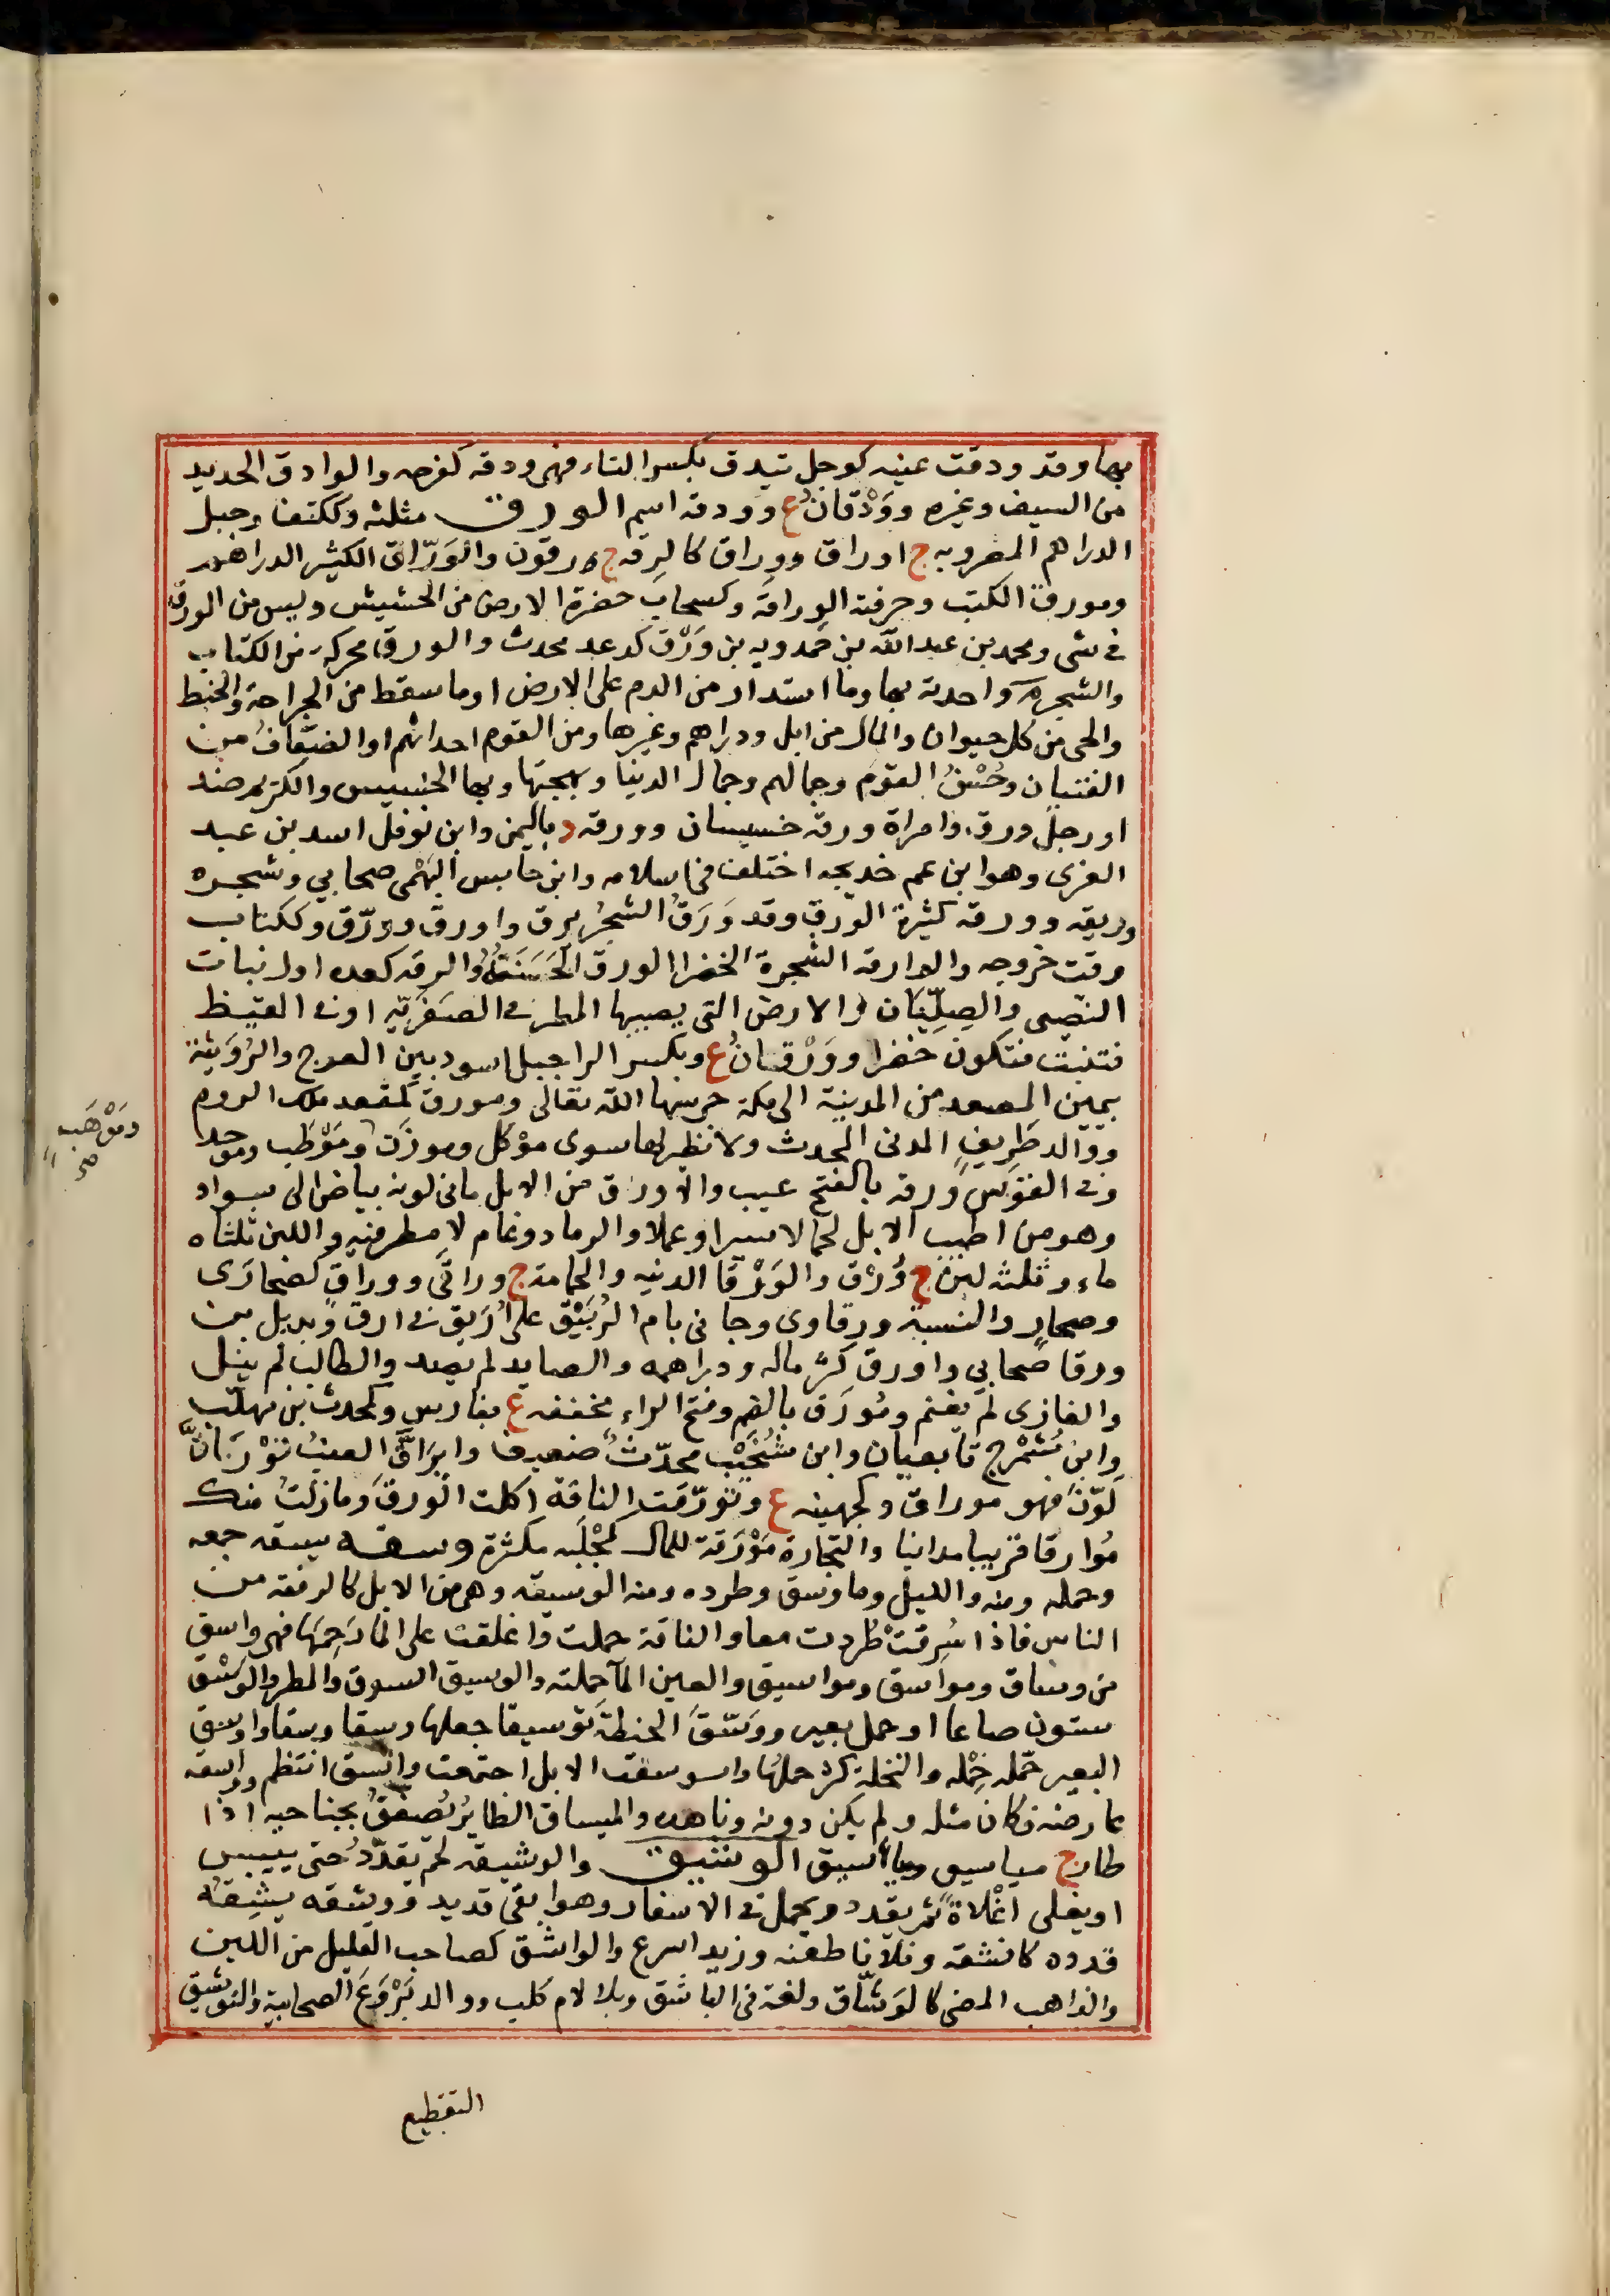 بها وقد ودقت عينه كوجل تيدق بكسر التاء فهى ودقه كفرحه والوادق الحديد
من السيف وغيره ووَدْقانُ ع وودقه اسم الورق مثلثه وككتف وجبل
الدراهم المضروبه ج اوراق ووراق كالرِقه ج رقون والوَرّاق الكثير الدراهم
ومورق الكتب وحرفته الوِراقة وكسحاب خضرة الارض من الحشيش وليس من الورق
فى شى ومحمد بن عبد الله بن حَمدويه بن وَرْق كوعد محدث والورق محركه من الكتاب
والشجر واحدته بها وما استدار من الدم على الارض او ما سقط من الجراحة والخبط
والحى من كل حيوان والمال من ابل ودراهم وغيرها ومن القوم احداثهم او الضِعَافُ من
الفتيان وحُسْنُ القوم وجمالهم وجمال الدنيا وبهجتها وبها الخسيس والكريم ضد
او رجل ورق وامراة ورقة خسيسان وورقه د باليمن وابن نوفل اسد بن عبد
العزى وهو ابن عم خديجه اختلف فى اسلامه وابن حابس التيْمى صحابي وشجره
وريقه وورقه كثيرة الورق وقد وَرَقَ الشجرُ يرق واورق وورّق وككتاب
وقت خروجه والوارقه الشجرة الخضرا الورق الحَسَنَتُهُ والرقه كعده اول نبات
النصى والصِلِّيَان والارض التى يصيبها المطر فى الصَفَرِيّه او فى القيظ
فتنبت فتكون خضرا ووَرْقانُ ع وبكسر الرا جبل اسود بين العرج والرُوَيثة
بيمين المصعد من المدينة الى مكة حرسها الله تعالى ومورق كمقعد ملك الروم
ووالد طَرِيفٍ المدنى المحدث ولا نظير لها سوى موْكل وموزَن ومَوْظَب وموحد
ومَوْهَب صح
وفى القوس وَرقه بالفتح عيب والاورق من الابل ما فى لونه بياض الى سواد
وهو من اطيب الابل لحما لا سيرا وعملا والرماد وعام لا مطر فيه واللبن ثلثاه
ماء وثلثه لبن ج وُرْق والوَرْقا الذئبه والحمامة ج وراقَى ووراق كصَحارَى
وصحارٍ والنسبة ورقاوى وجا فى بام الرُبَيْق على اُرَيق فى ارق وبديل بن
ورقا صحابي واورق كثر ماله ودراهمه والصايد لم يصد والطالب لم ينل
والغازى لم يغنم ومُورَق بالضم وفتح الراء مخففه ع بفارس وكمحدث بن مهلّب
وابن مُشَمْرج تابعيان وابن سُخَيْت محدّث ضعيف وايْرَاقَّ العنب يَوْرَاقُّ
لَوّن فهو موراق وكجهينه ع وتورّقت الناقة اكلت الورق وما زلت منك
مُوارقا قريبا مدانيا والتجارة مَوْرَقة للمال كمَجْلَبَه مكثرة وسقه يسقه جمعه
وحمله ومنه والليل وما وسق وطرده ومنه الوسيقه وهى من الابل كالرفقه من
الناس فاذا سُرِقتْ طُرِدت معا والناقة حملت واغلقت على الما رَحِمَها فهى واسق
من وساق ومواسق ومواسيق والعين المآ حملته والوسيق السوق والمطر والوَسْق
ستون صاعا او حمل بعير ووَسّقَ الحنطة توسيقا جعلها وسقا وسقا واوسق
البعير حَمّله حِمْله والنخلة كثر حملُها واستوسقت الابل اجتمعت واتسق انتظم وواسقه
عارضه فكان مثله ولم يكن دونه وناهده والميساق الطايرُ يُصفّقُ بجناحيه اذا
طار ج مياسيق وماسيق الوشيق والوشيقه لحم يقدّدُ حتى ييبس
او يغلى اغْلاةً ثم يقدد ويحمل فى الاسفار وهو ابقى قديد ووشقه يشِقه
قدده كاتشقه وفلانا طعنه وزيد اسرع والواشق كصاحب القليل من اللبن
والذاهب المضى كالوَشَّاق ولغة فى الباشق وبلا لام كلب ووالد بَرْوَعَ الصحابية والتوشيق
التقطيع